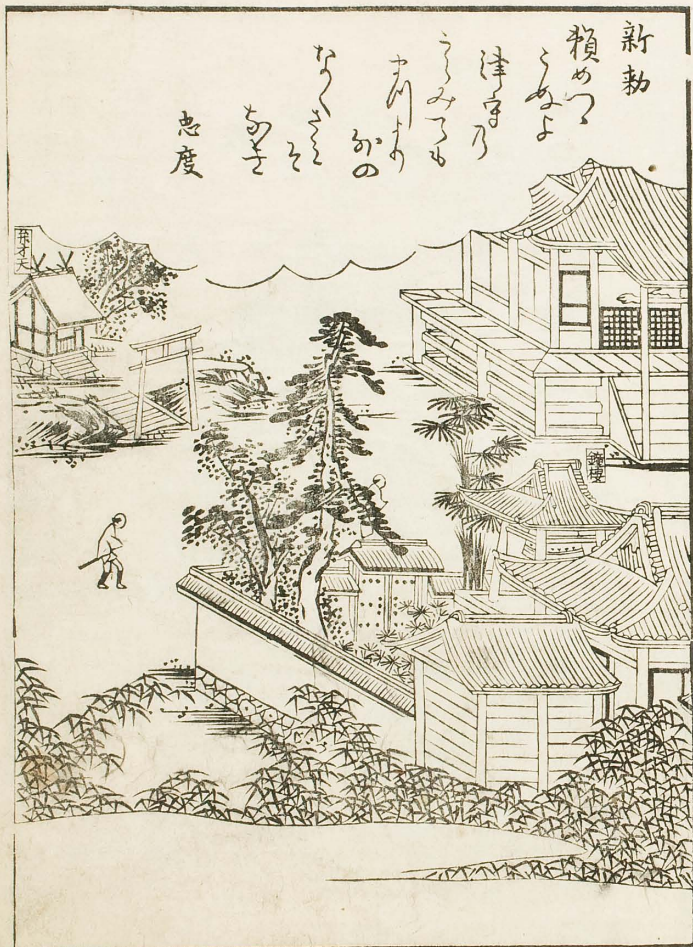 新勅
頼めつゝ
こぬよ
津守乃
うらみても
まつより
外の
なくさミ
そ
なき
忠度
鐘樓
弁才天